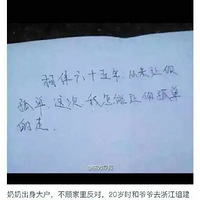 相伴六十五年 从未让你
孤单 这次 我怎能让你孤单
的走.
奶奶出身大户,不顾家里反对,20岁时和爷爷去浙江组建